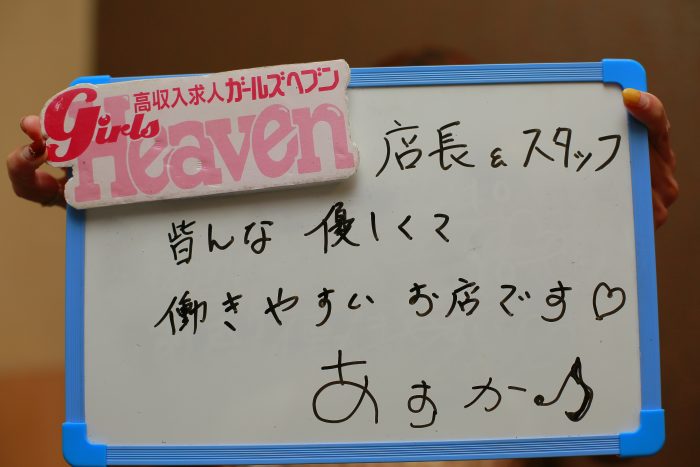 高収入求人ガールズヘブン
Girls
Heaven
店長 & スタッフ
皆んな 優しくて
働きやすい お店です♡
あすか♪